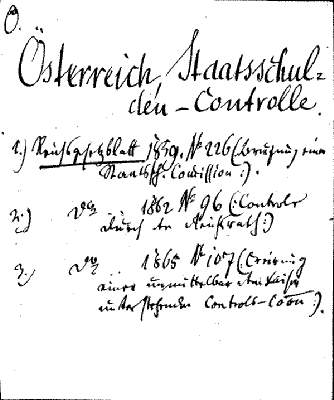 O.
Österreich, Staatsschul=
den-Controlle.
1.) Reichsgesetzblatt 1859. No 226 (: Creirung einer
Staatssch. Comission :).
2.) dto 1862 No 96 (: Controle
durch den Reichsrath :)
3.) dto 1865 No 107 (: Creirung
einer unmittelbar dem Kaiser
unterstehenden Controls-Coon :).